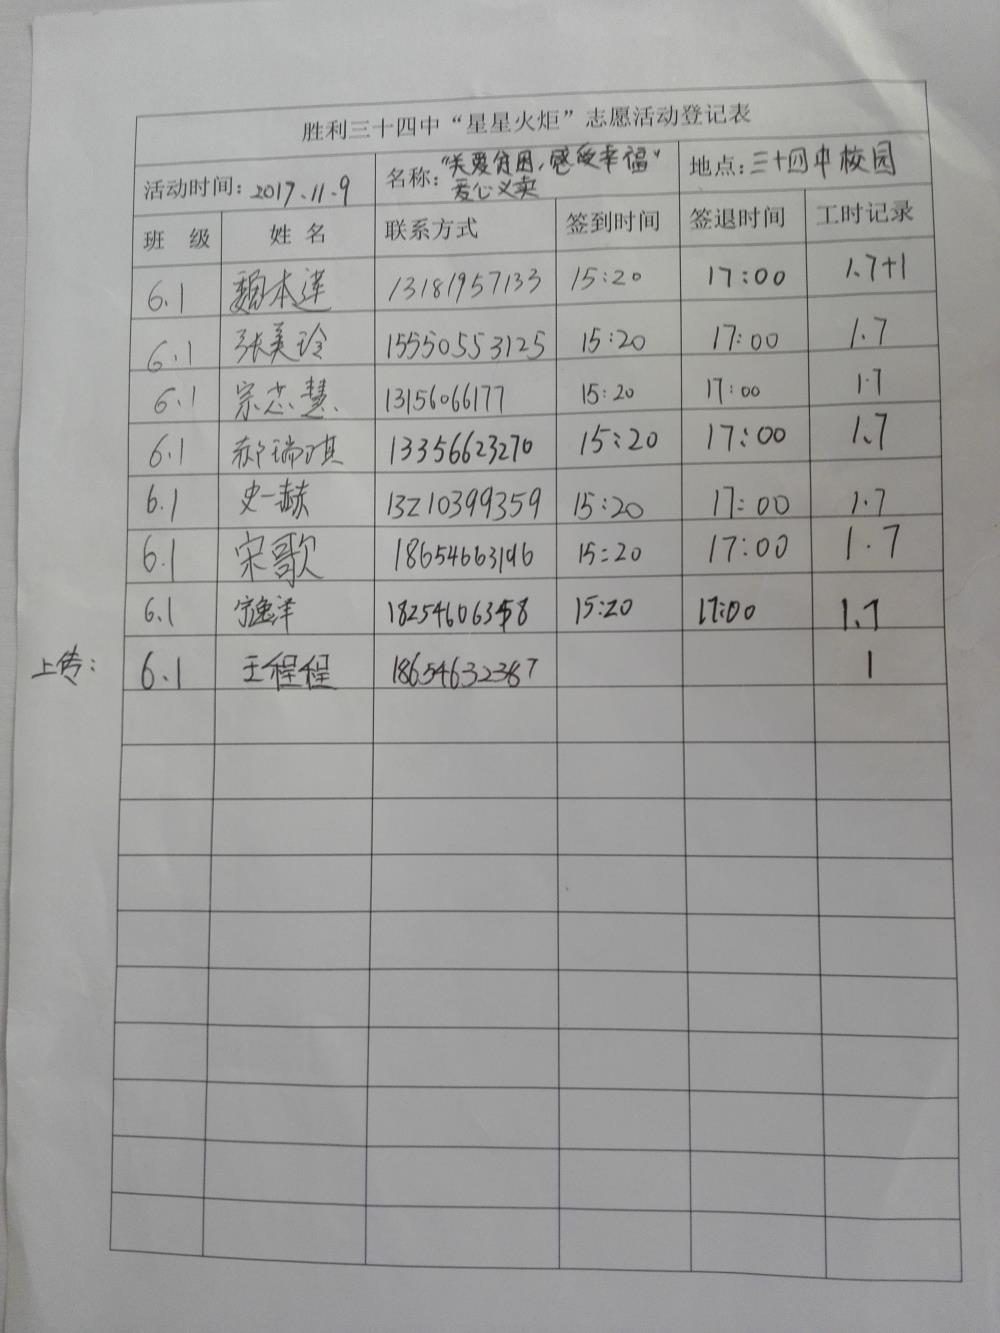 胜利三十四中“星星火炬”志愿活动登记表
活动时间：2017.11.9 名称：“关爱贫困，感受幸福”爱心义卖 地点：三十四中校园
班 级 姓 名 联系方式 签到时间 签退时间 工时记录
6.1 魏本莲 13181957133 15:20 17:00 1.7+1
6.1 张美玲 15550553125 15:20 17:00 1.7
6.1 宗志慧 13156066177 15:20 17:00 1.7
6.1 郝瑞琪 13356623270 15:20 17:00 1.7
6.1 史一赫 13210399359 15:20 17:00 1.7
6.1 宋歌 18654663196 15:20 17:00 1.7
6.1 15:20 17:00 1.7
上传： 6.1 王程程 18654632387 1